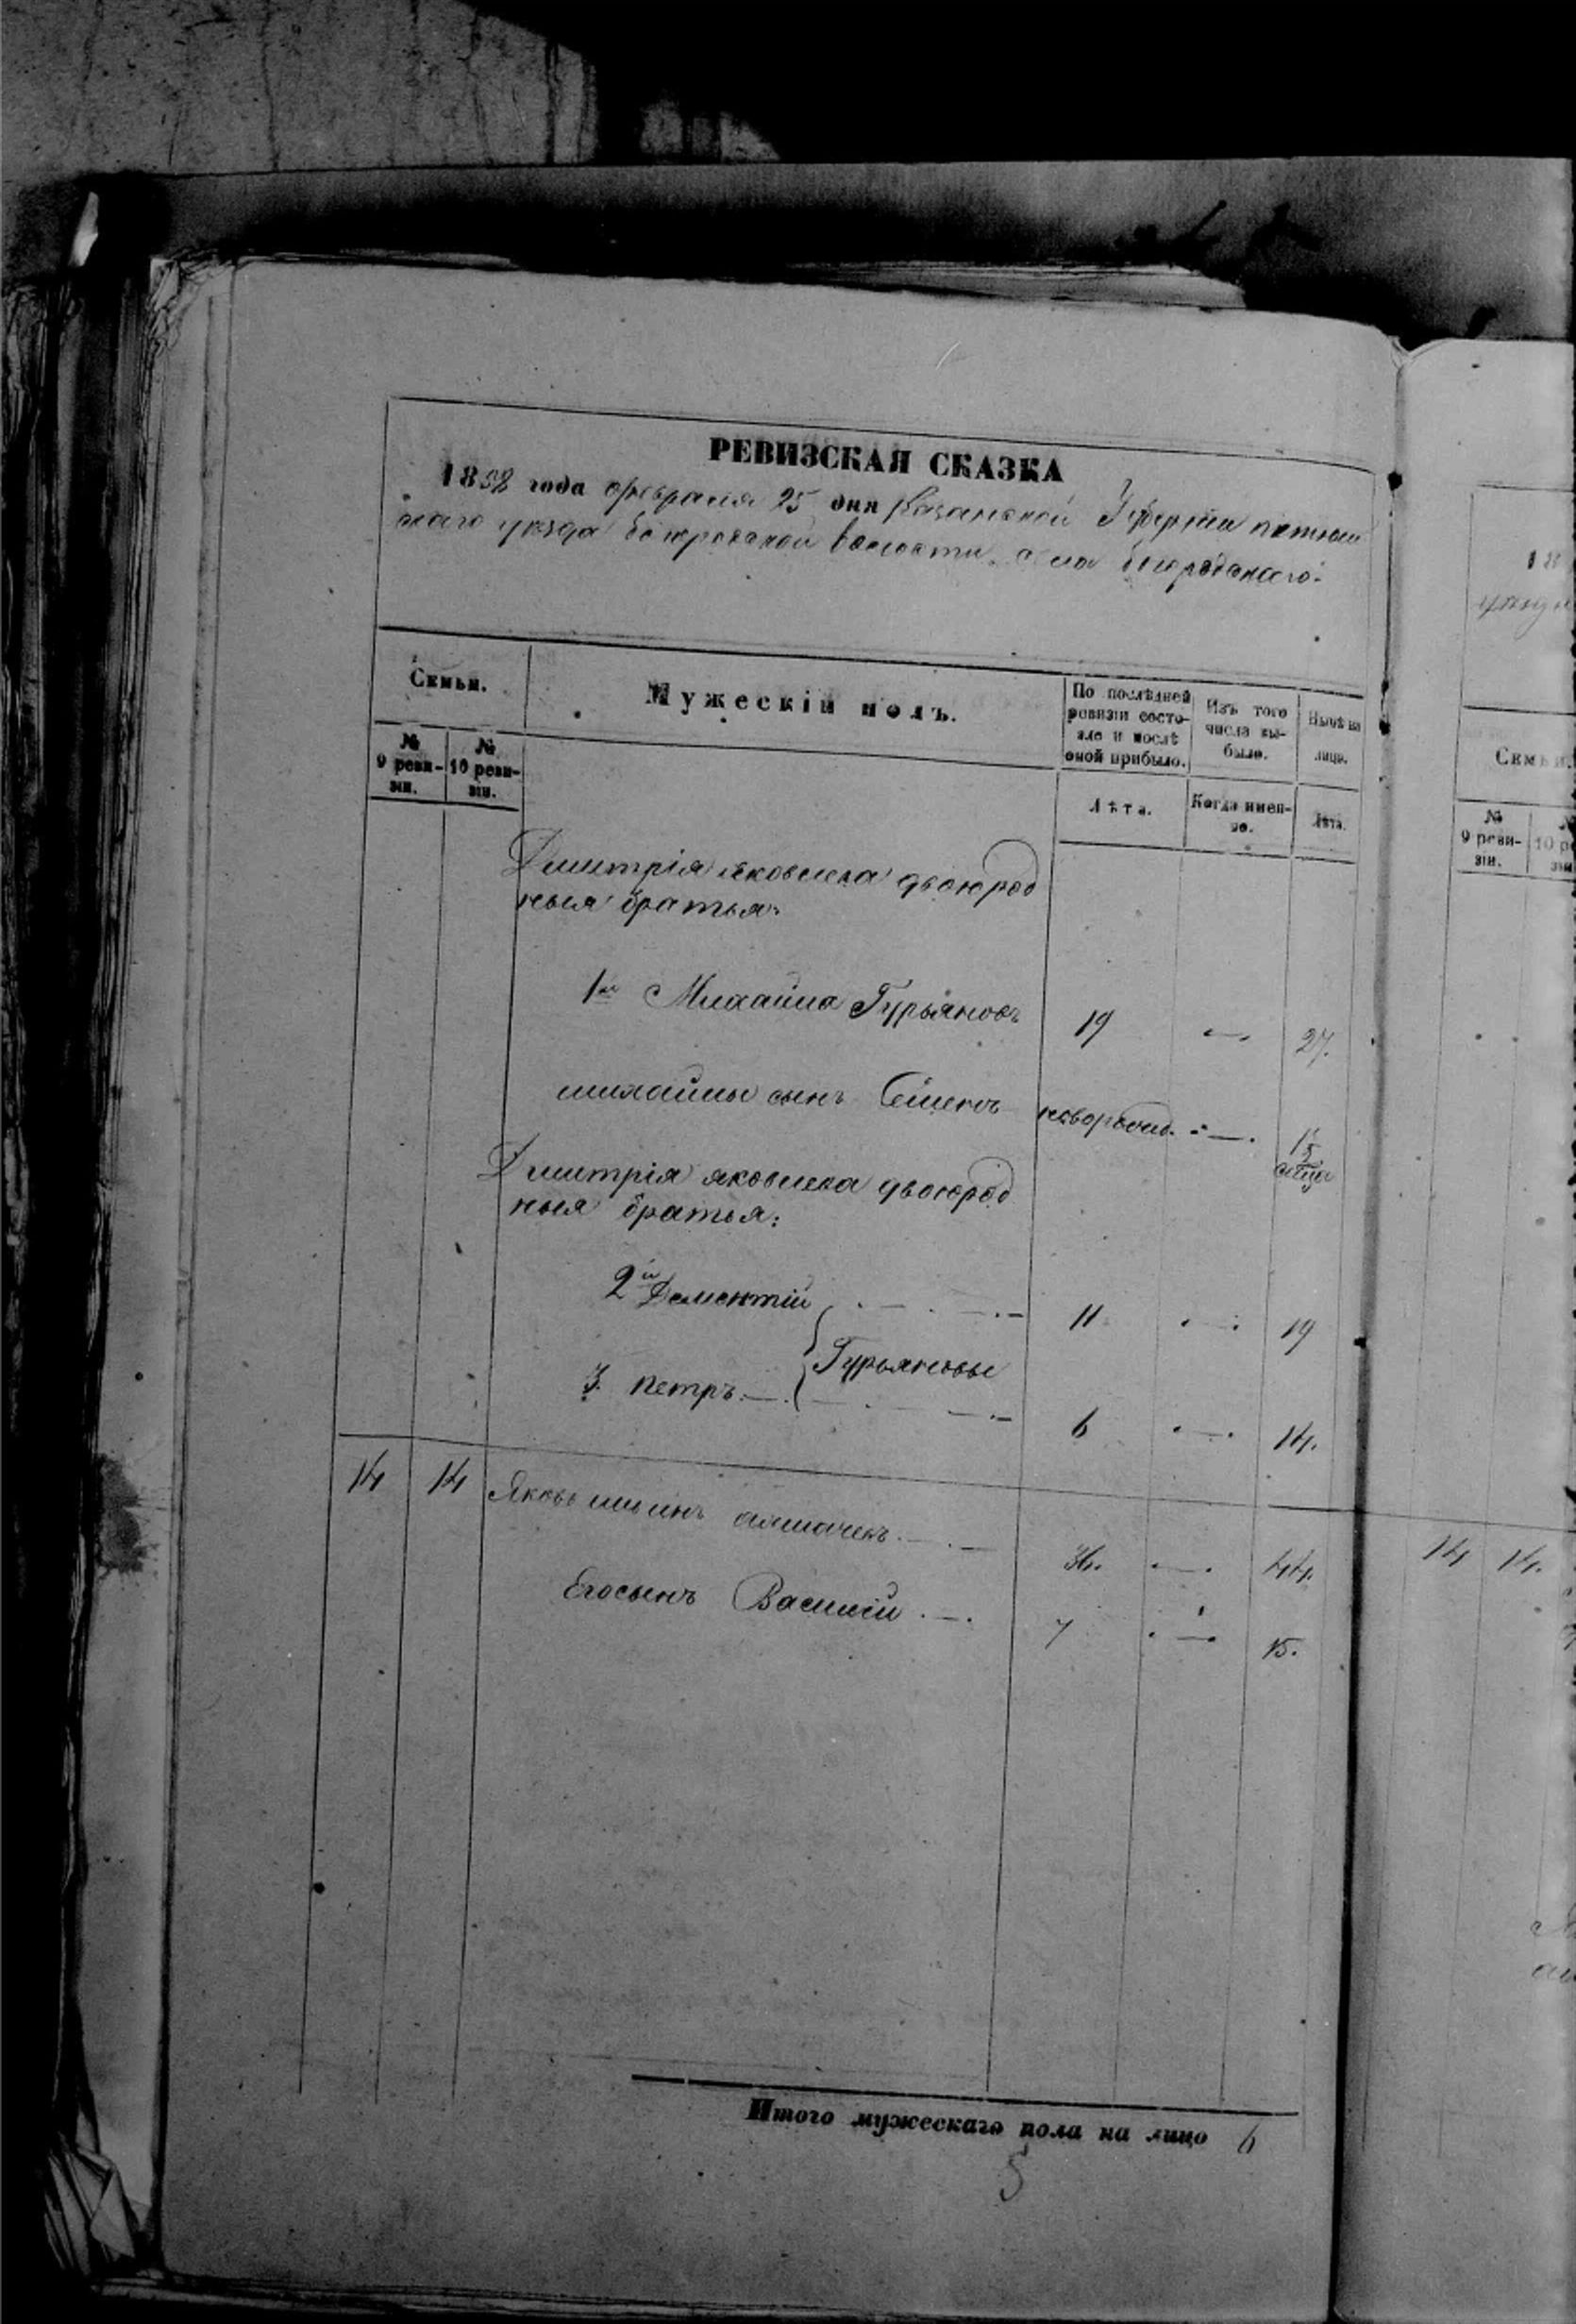 РЕВИЗСКАЯ СКАЗКА
1858 года февраля 25 дня Казанской Губернiи
скаго уѣзда волости села
Семьи.
Мужескiй полъ.
По послѣдней ревизiи состояло и послѣ оной прибыло.
Изъ того числа выбыло.
Нынѣ на лицо.
№ 9 ревизiи.
№ 10 ревизiи.
Лѣта.
Когда именно.
Лѣта.
Дмитрiя яковлева двоюрод
ныя братья:
1й Михайла Гурьяновъ 19 — 27.
михайлы сынъ Семенъ новорожд. — 1½
Дмитрiя яковлева двоюрод
ныя братья:
2й Дементiй 11 — 19
Гурьяновы
3. петръ 6 — 14.
14 14 Яковъ ильинъ 36. — 44.
Егосынъ Василiй 7 — 15.
Итого мужескаго пола на лицо 6
5
18
уѣзда
Семьи.
№ 9 ревизiи.
14 14.